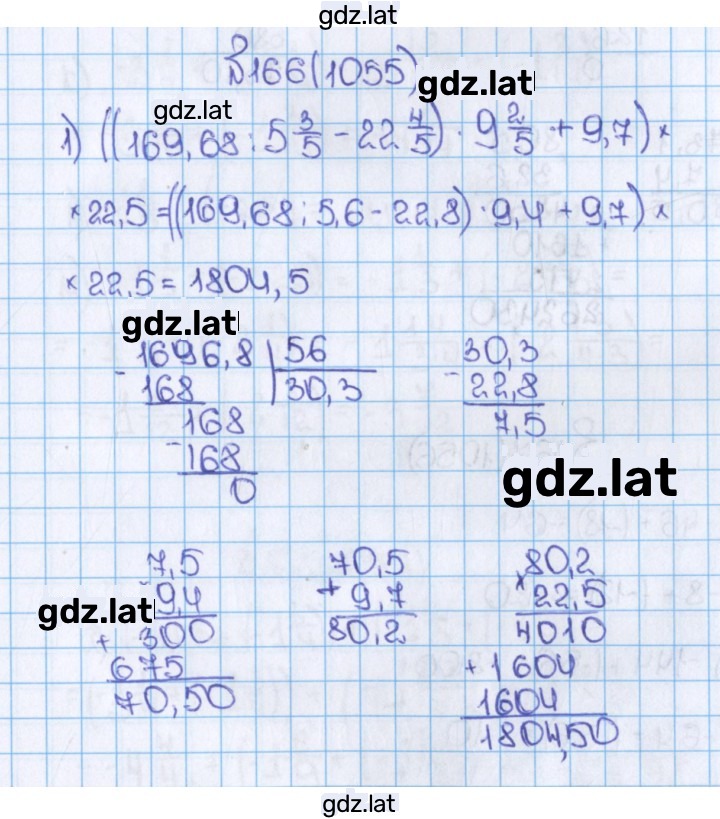 gdz.lat
№166(1055)
gdz.lat
gdz.lat
1) ((169,68 : 5 3/5 - 22 4/5) · 9 2/5 + 9,7) ×
× 22,5 = ((169,68 : 5,6 - 22,8) · 9,4 + 9,7) ×
× 22,5 = 1804,5
gdz.lat
1696,8 | 56
- 168 | 30,3
168
- 168
0
30,3
- 22,8
7,5
gdz.lat
7,5
× 9,4
gdz.lat
+ 300
675
70,50
70,5
+ 9,7
80,2
80,2
× 22,5
4010
+ 1604
1604
1804,50
gdz.lat